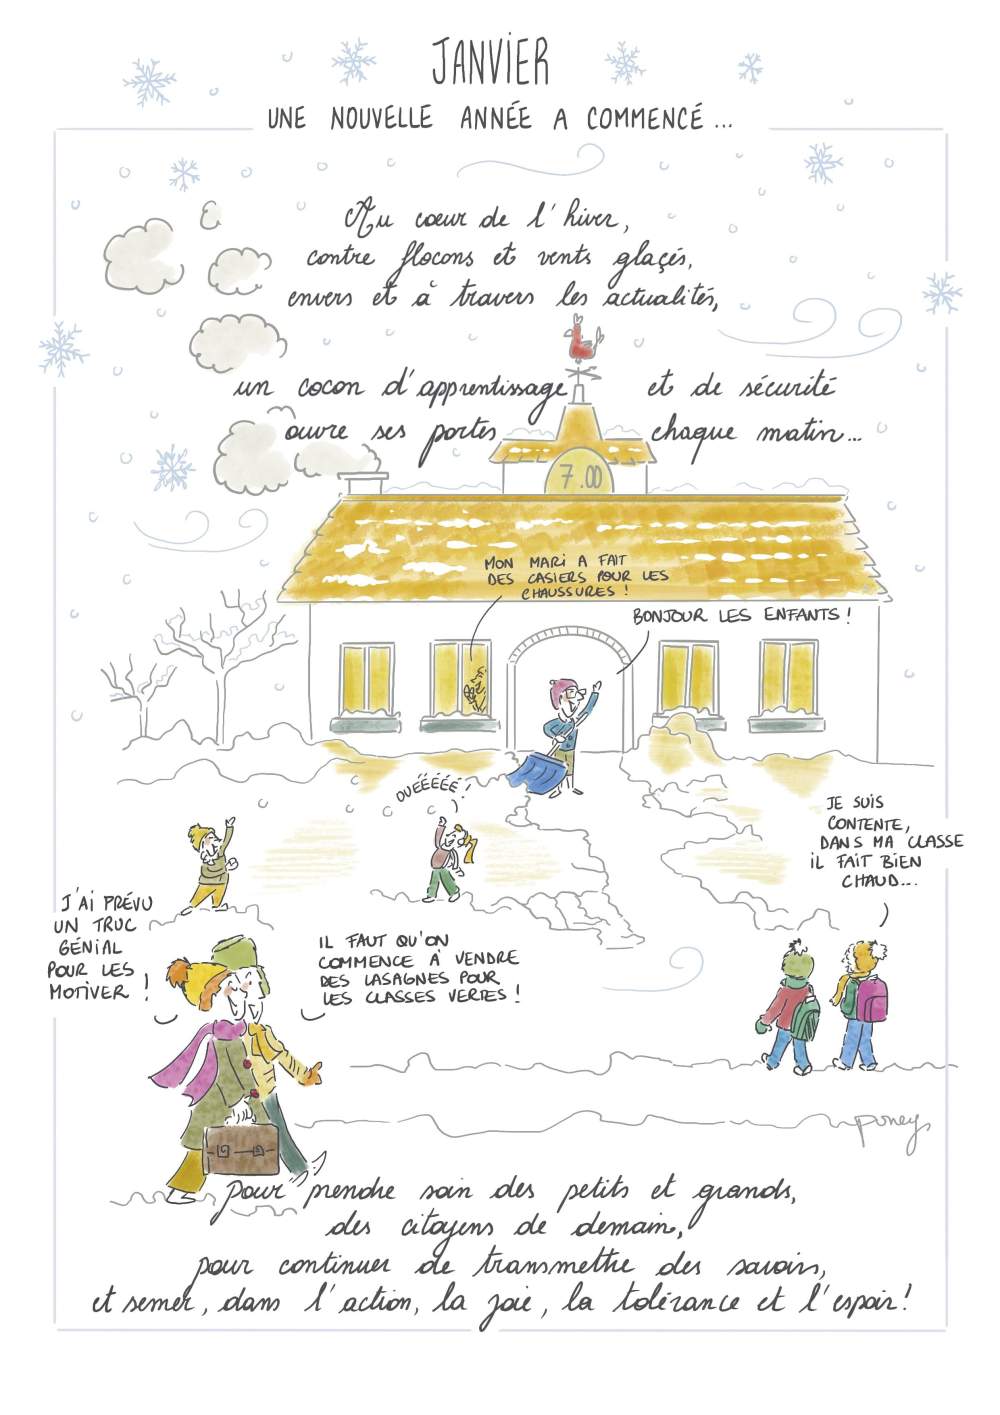 JANVIER
UNE NOUVELLE ANNÉE A COMMENCÉ ...
Au cœur de l'hiver,
contre flocons et vents glaçés,
envers et à travers les actualités,
un cocon d'apprentissage et de sécurité
ouvre ses portes chaque matin...
7.00
MON MARI A FAIT
DES CASIERS POUR LES
CHAUSSURES !
BONJOUR LES ENFANTS !
OUÉÉÉÉÉ !
JE SUIS
CONTENTE,
DANS MA CLASSE
IL FAIT BIEN
CHAUD...
J'AI PRÉVU
UN TRUC
GÉNIAL
POUR LES
MOTIVER !
IL FAUT QU'ON
COMMENCE À VENDRE
DES LASAGNES POUR
LES CLASSES VERTES !
poney
pour prendre soin des petits et grands,
des citoyens de demain,
pour continuer de transmettre des savoirs,
et semer, dans l'action, la joie, la tolérance et l'espoir !